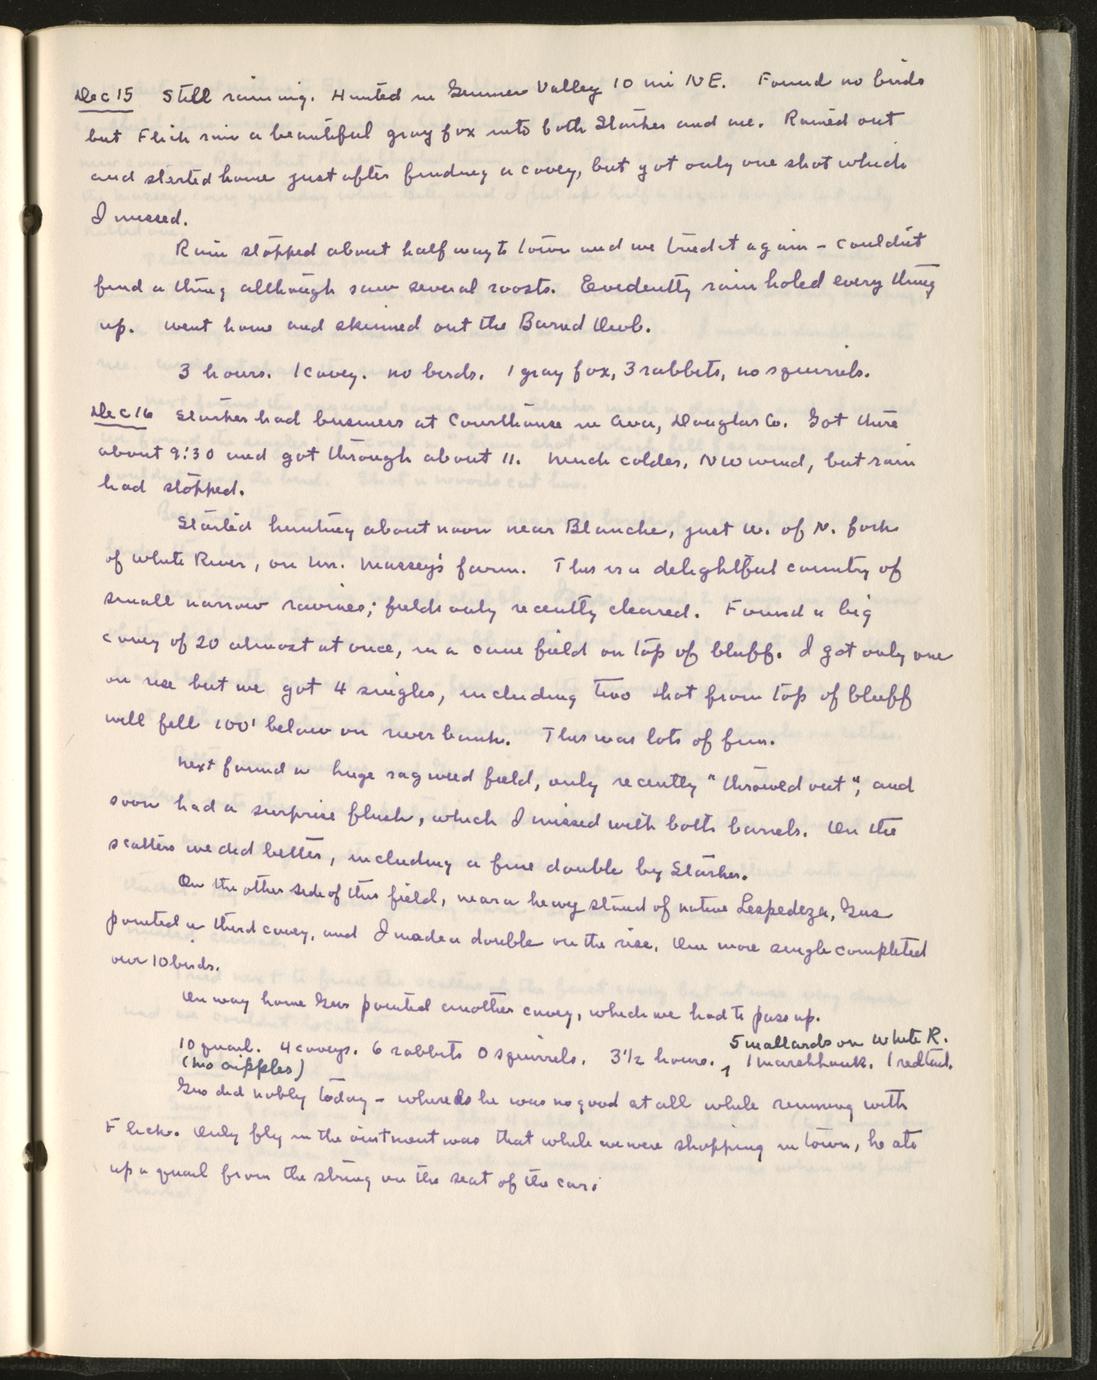 Dec 15 Still raining. Hunted in Gunner Valley 10 mi NE. Found no birds
but Flick ran a beautiful gray fox into both Starker and me. Rained out
and started home just after finding a covey, but got only one shot which
I missed.
Rain stopped about half way to town and we tried it again - couldn't
find a thing although saw several roosts. Evidently rain holed every thing
up. Went home and skinned out the Barred Owl.
3 hours. 1 covey. no birds. 1 gray fox, 3 rabbits, no squirrels.
Dec 16 Starker had business at Courthouse in Ava, Douglas Co. Got there
about 9:30 and got through about 11. Much colder, NW wind, but rain
had stopped.
Started hunting about noon near Blanche, just w. of N. fork
of White River, on Mr. Massey's farm. This is a delightful country of
small narrow ravines; fields only recently cleared. Found a big
covey of 20 almost at once, in a cane field on top of bluff. I got only one
on rise but we got 4 singles, including two shot from top of bluff
will fell 100' below on river bank. This was lots of fun.
Next found a huge ragweed field, only recently "throwed out", and
soon had a surprise flush, which I missed with both barrels. On the
scatters we did better, including a fine double by Starker.
On the other side of this field, near a heavy stand of native Lespedeza, Gus
pointed a third covey, and I made a double on the rise. One more single completed
our 10 birds.
On way home Gus pointed another covey, which we had to pass up.
5 mallards on White R.
10 quail. 4 coveys. 6 rabbits 0 squirrels. 3 1/2 hours. 1 marshhawk. 1 redtail.
(no cripples)
Gus did nobly today - whereas he was no good at all while running with
Flick. Only fly in the ointment was that while we were shopping in town, he ate
up a quail from the string on the seat of the car!